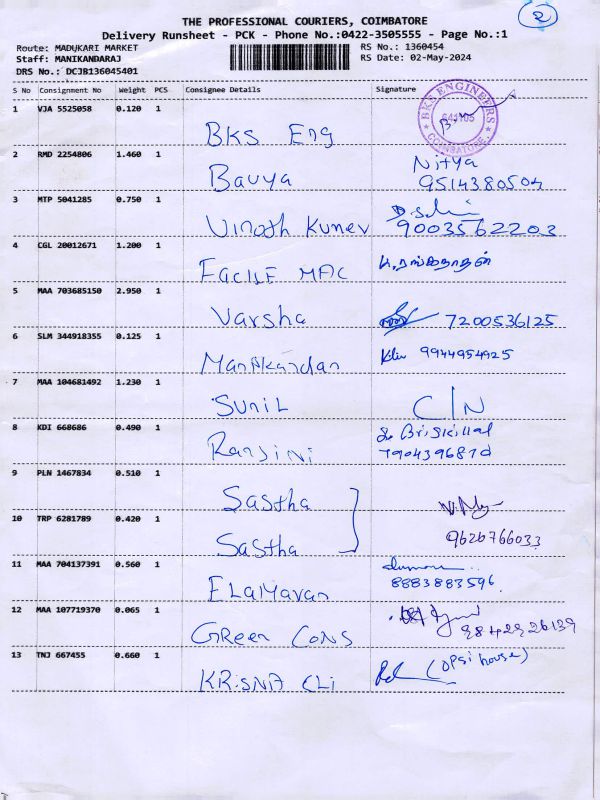 2
THE PROFESSIONAL COURIERS, COIMBATORE
Delivery Runsheet - PCK - Phone No.:0422-3505555 - Page No.:1
Route: MADUKARI MARKET RS No.: 1360454
Staff: MANIKANDARAJ RS Date: 02-May-2024
DRS No.: DCJB136045401
S No Consignment No Weight PCS Consignee Details Signature
1 VJA 5525058 0.120 1 BKS Eng
BKS ENGINEERS
COIMBATORE
2 RMD 2254806 1.460 1 Bavya Nitya
9514380504
3 MTP 5041285 0.750 1 Vinoth Kumev
9003562203
4 CGL 20012671 1.200 1 FACILE MAC
5 MAA 703685150 2.950 1 Varsha 7200536125
6 SLM 344918355 0.125 1 Manikandan 9944954925
7 MAA 104681492 1.230 1 SUNIL C/N
8 KDI 668686 0.490 1 Ranjini
7904396870
9 PLN 1467834 0.510 1 Sastha
10 TRP 6281789 0.420 1 Sastha 9620766033
11 MAA 704137391 0.560 1 ELAMaran
8883883596
12 MAA 107719370 0.065 1 GReen CONS
9842926139
13 TNJ 667455 0.660 1 KRiSNA CLi (OPSi house)